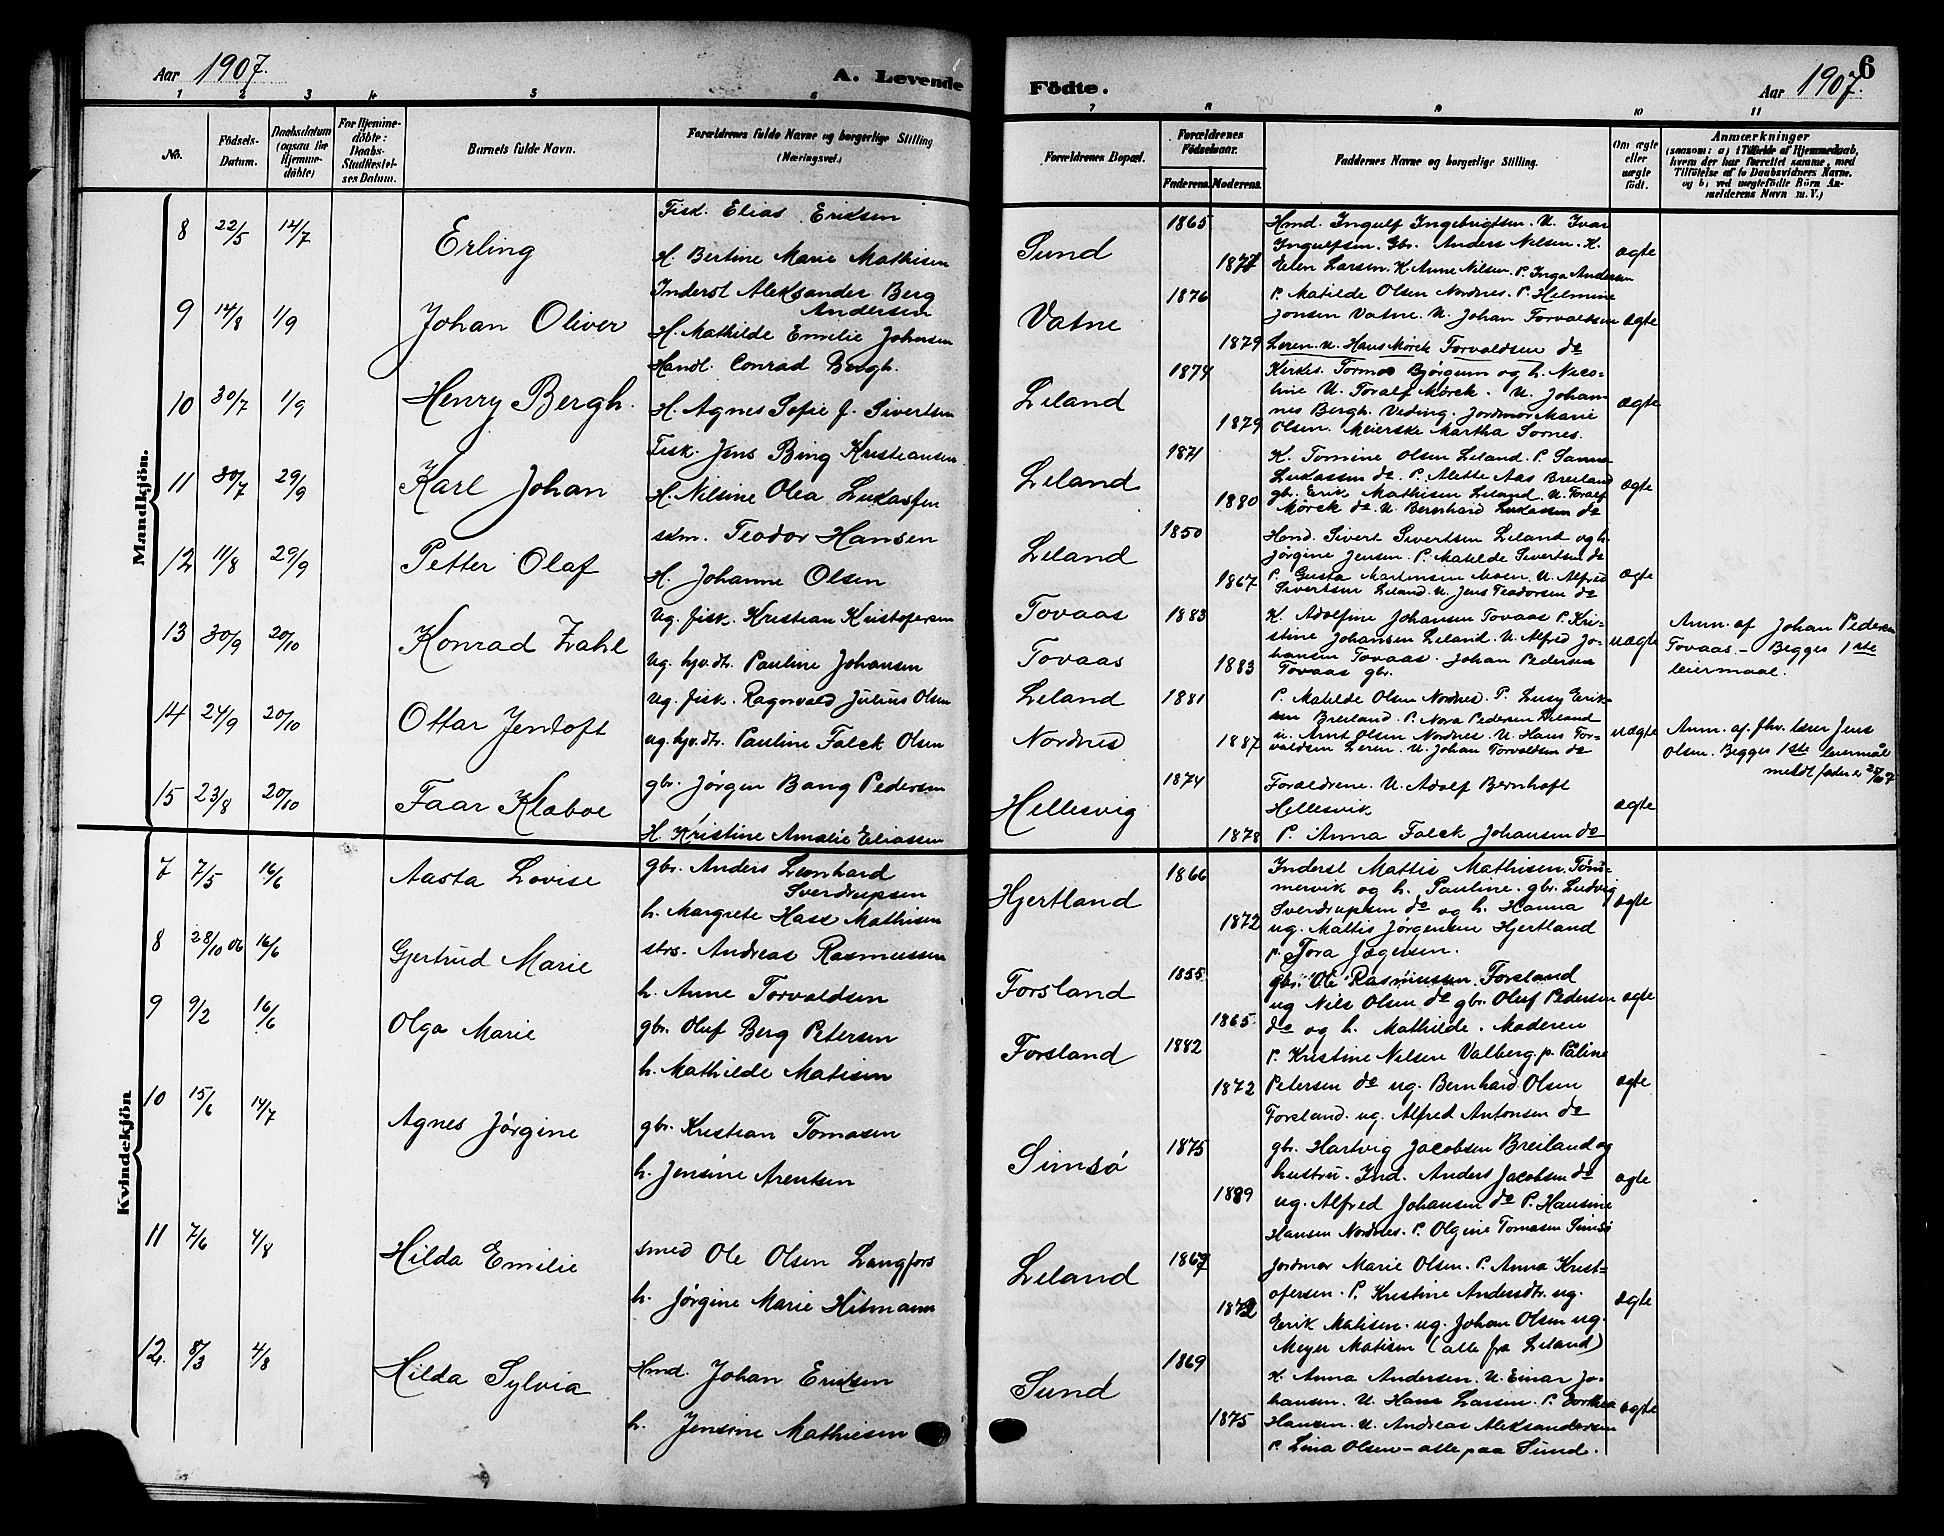 Aar 1907. A. Levende Födte. Aar 1907. 6
1 2 3 4 5 6 7 8 9 10 11
No. Födsels-Datum. Daabsdatum (ogsaa for Hjemme-döbte) For Hjemme-döbte: Daabs-Stadfæstel-ses Datum. Barnets fulde Navn. Forældrenes fulde Navne og borgerlige Stilling (Næringsvei.) Forældrenes Bopæl. Forældrenes Födselsaar. Faderens. Moderens. Faddernes Navne og borgerlige Stilling. Om ægte eller uægte födt. Anmærkninger (saasom: a) i Tilfælde af Hjemmedaab, hvem der har forrettet samme, med Tilföielse af to Daabsvidners Navne. og b) ved uægtefödte Börn An-melderens Navn m. V.)
Mandkjön.
8 22/5 14/7 Erling
Fisk. Elias Eriksen
H. Bertine Marie Mathisen
Sund 1865 1877
Hmd. Ingulf Ingebrigtsen. U. Ivar
Ingulfsen. Gbr. Anders Nilsen. K.
Elen Larsen. K. Anne Nilsen. P. Inga Andersen
ægte
9 14/8 1/9 Johan Oliver
Inderst Aleksander Berg
Andersen
H. Mathilde Emilie Johnsen
Vatne 1876 1879
P. Matilde Olsen Nordnes. P. Helmine
Jonsen Vatne. U. Johan Torvaldsen
Leren. U. Hans Mørck Torvaldsen do
ægte
10 30/7 1/9 Henry Bergh.
Handl. Conrad Bergh.
H. Agnes Sofie f. Sivertsen
Leland 1874 1879
Kirkes. Tormod Bjørgum og h. Nico-
line U. Toralf Mørck. U. Johan-
nes Bergh. Veding. Jordmor Marie
Olsen. Meierske Martha Sornes.
ægte
11 30/7 29/9 Karl Johan
Fisk. Jens Bing Kristiansen
H. Nilsine Olea Lukassen
Leland 1871 1880
K. Tomine Olsen Leland. P. Sanna
Lukassen do. P. Alette Aas Breiland
gbr. Erik Mathisen Leland. U. Toralf
Mørck do. U. Bernhard Lukassen do
ægte
12 11/8 29/9 Petter Olaf
skm. Teodor Hansen
H. Johanne Olsen
Leland 1850 1867
Hmd. Sivert Sivertsen Leland og h.
Jørgine Jensen. P. Matilde Sivertsen do
P. Gusta Martinsen Moen. U. Alfred
Sivertsen Leland. U. Jens Teodorsen do
ægte
13 30/9 20/10 Konrad Zahl
Ug. fisk. Kristian Kristofersen
ug. hjv. dtr. Pauline Johansen
Tovaas
Tovaas
1883 1883
K. Adolfine Johansen Tovaas P. Kri-
stine Johansen Leland. U. Alfred Jo-
hansen Tovaas. Johan Pedersen
Tovaas gbr.
uægte
Anm. af Johan Pedersen
Tovaas. - Begges 1ste
leiermaal.
14 24/9 20/10 Ottar Jentoft
Ug. fisk. Ragnvald Julius Olsen
ug. hjv. dtr. Pauline Falck Olsen
Leland
Nordnes
1881 1887
P. Matilde Olsen Nordnes. P. Lusy Erik-
sen Breiland. P. Nora Pedersen Leland
U. Arnt Olsen Nordnes. U. Hans Tor-
valdsen Leren. U. Johan Torvaldsen do
uægte
Anm. af fhv. lærer Jens
Olsen. Begges 1ste leiermål
15 23/8 20/10 Faar Klaboe
gbr. Jørgen Bang Pedersen
H. Kristine Amalie Eliassen
Hellesvig 1874 1878
Forældrene. U. Adolf Bernhoft
Hellesvik
P. Anna Falck Johansen do
ægte
Kvindekjön
7 7/5 16/6 Aasta Lovise
gbr. Anders Leonhard
Sverdrupsen
h. Margrete Hass Mathisen
Hjertland 1866 1872
Inderst Mattis Mathisen Tøm-
mervik og h. Pauline. gbr. Ludvig
Sverdrupsen do og h. Hanna
ug. Mattis Jørgensen Hjertland
p. Tora Jægersen.
ægte
8 28/10 06 16/6 Gjertrud Marie
strs. Andreas Rasmussen
h. Anne Torvaldsen
Forsland 1855 1865.
gbr. Ole Rasmussen Forsland
ug Nils Olsen do gbr. Oluf Pedersen
do og h. Mathilde. Moderen
ægte
9 9/2 16/6 Olga Marie
gbr. Oluf Berg Petersen
h. Mathilde Matisen
Forsland 1882 1872
P. Kristine Nilsen Valberg. p. Paline
Petersen do ug. Bernhard Olsen
Forsland. ug. Alfred Antonsen do
ægte
10 15/6 14/7 Agnes Jørgine
gbr. Kristian Tomasen
h. Jensine Arentsen
Simsø 1875 1889
gbr. Hartvig Jacobsen Breiland og
hustru. Ind. Anders Jacobsen do
ug. Alfred Johansen do P. Hansine
Hansen Nordnes. P. Olgine Tomasen Simsø
ægte
11 7/6 4/8 Hilda Emilie
smed Ole Olsen Langfors
h. Jørgine Marie Hitmann
Leland 1867 1872
Jordmor Marie Olsen. P. Anna Krist-
ofersen. P. Kristine Andersdtr. ug.
Erik Matisen. ug. Johan Olsen ug.
Meyer Matisen (alle fra Leland)
ægte
12. 8/3 4/8 Hilda Sylvia
Hmd. Johan Eriksen
h. Jensine Mathisen
Sund 1869 1875
K. Anna Andersen. U. Einar Jo-
hansen. U. Hans Larsen. P. Dorthea
Hansen. U. Andreas Aleksandersen
P. Lina Olsen - alle paa Sund.
ægte